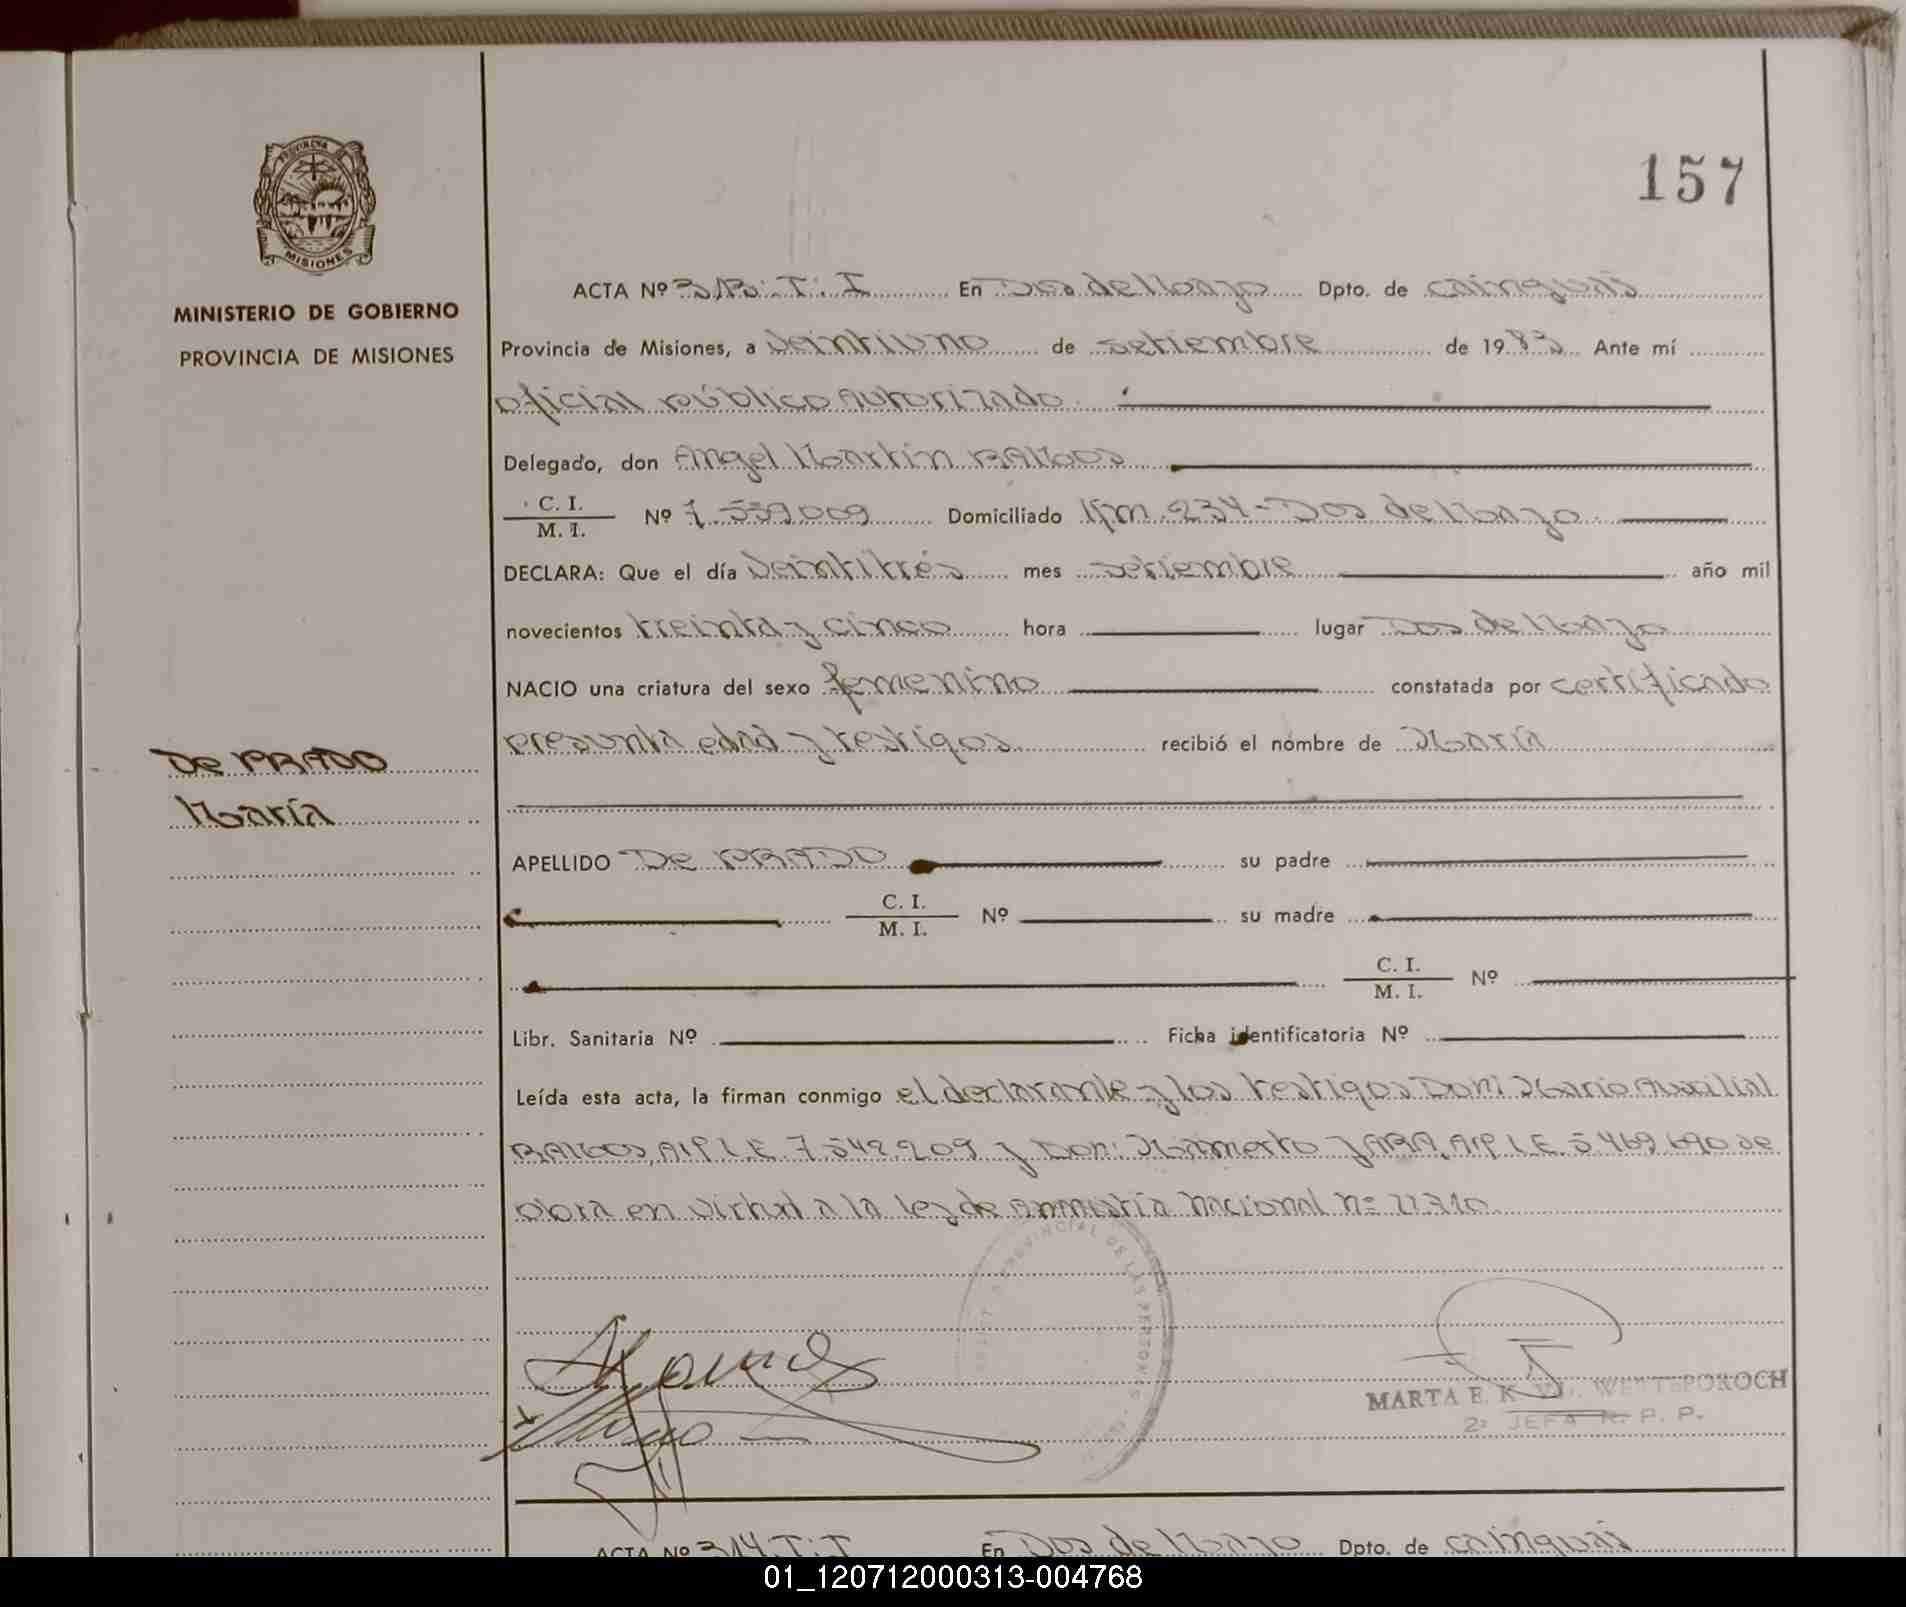 157
PROVINCIA DE
MISIONES
MINISTERIO DE GOBIERNO
PROVINCIA DE MISIONES
ACTA Nº 313. T. I En Dos de Mayo Dpto. de Cainguás
Provincia de Misiones, a veintiuno de setiembre de 1983 Ante mí
oficial público autorizado
Delegado, don Angel Martin RAMOS
C. I.
M. I. Nº 7.539.009 Domiciliado Km. 234 - Dos de Mayo
DECLARA: Que el día veintitrés mes setiembre año mil
novecientos treinta y cinco hora lugar Dos de Mayo
NACIO una criatura del sexo femenino constatada por certificado
presunta edad y testigos recibió el nombre de María
De PRADO
María
APELLIDO De PRADO su padre
C. I.
M. I. Nº su madre
C. I.
M. I. Nº
Libr. Sanitaria Nº Ficha identificatoria Nº
Leída esta acta, la firman conmigo el declarante y los testigos Don: Mario Auxilial
RAMOS, AIP L.E. 7.542.209 y Don: Mamerto JARA, AIP L.E. 5.469.690 se
obra en virtud a la ley de Ammistía Nacional nº
PROVINCIAL DE LAS PERSONAS
MARTA E. K
2º JEFA R. P. P.
ACTA Nº 314. T. I En Dos de Mayo Dpto. de Cainguás
01_120712000313-004768